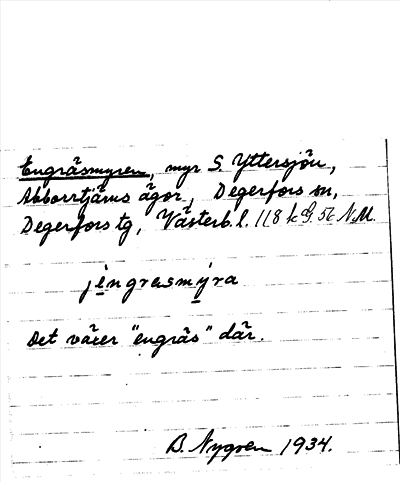 Engräsmyren, myr S. Yttersjön,
Abborrtjärns ägor, Degerfors sn,
Degerfors tg, Västerb. l. 118 k G. 56 N.M.
jengrasmyra
Det växer "engräs" där.
B. Nygren 1934.